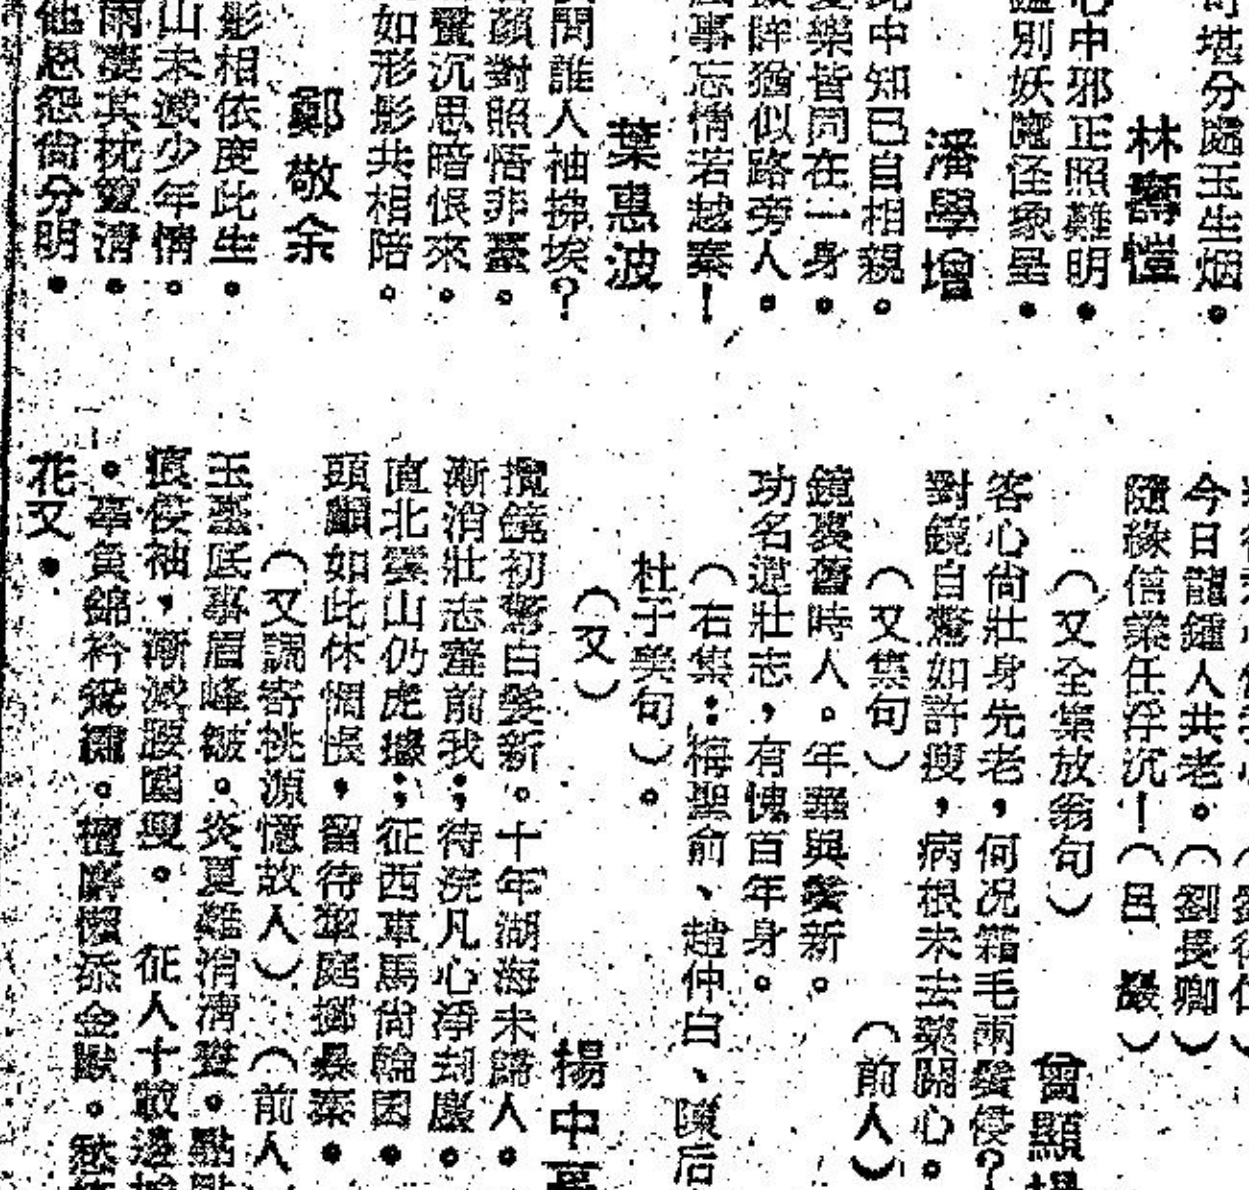 可堪分處玉生烟。
林壽愷
心中邪正照難明。
鑑別妖魔怪象呈。
潘學增
此中知己自相親。
憂樂皆同在一身。
眸猶似路旁人。
事忘情若越秦！
葉惠波
問誰人袖拂埃？
顏對照悟非臺。
沉思暗恨來。
如形影共相陪。
鄭敬余
影相依度此生。
山未減少年情。
雨淒其枕簟清。
他恩怨尚分明。
今日龍鍾人共老。（劉長卿）
隨緣信業任浮沉！（呂巖）
（又全集放翁句）
曾顯
客心尚壯身先老，何况霜毛兩鬢侵？
對鏡自驚如許瘦，病根未去藥關心。
（又集句）（前人）
鏡裏舊時人。年華與鬢新。
功名違壯志，有愧百年身。
（右集：梅聖俞、趙仲白、陳后
杜子美句）。
（又）楊中
攬鏡初驚白髮新。十年湖海未歸人。
漸消壯志羞前我；待浣凡心淨刦塵。
直北雲山仍虎據；征西車馬尚輪囷。
頭顱如此休惆悵，留待犂庭擲暴秦。
（又調寄桃源憶故人）（前人
玉臺底事眉峰皺。炎夏難消清晝。點
痕侵袖，漸減腰圍瘦。征人十載邊
。辜負錦衿鴛繡。檀麝懶添金獸。愁
花又。